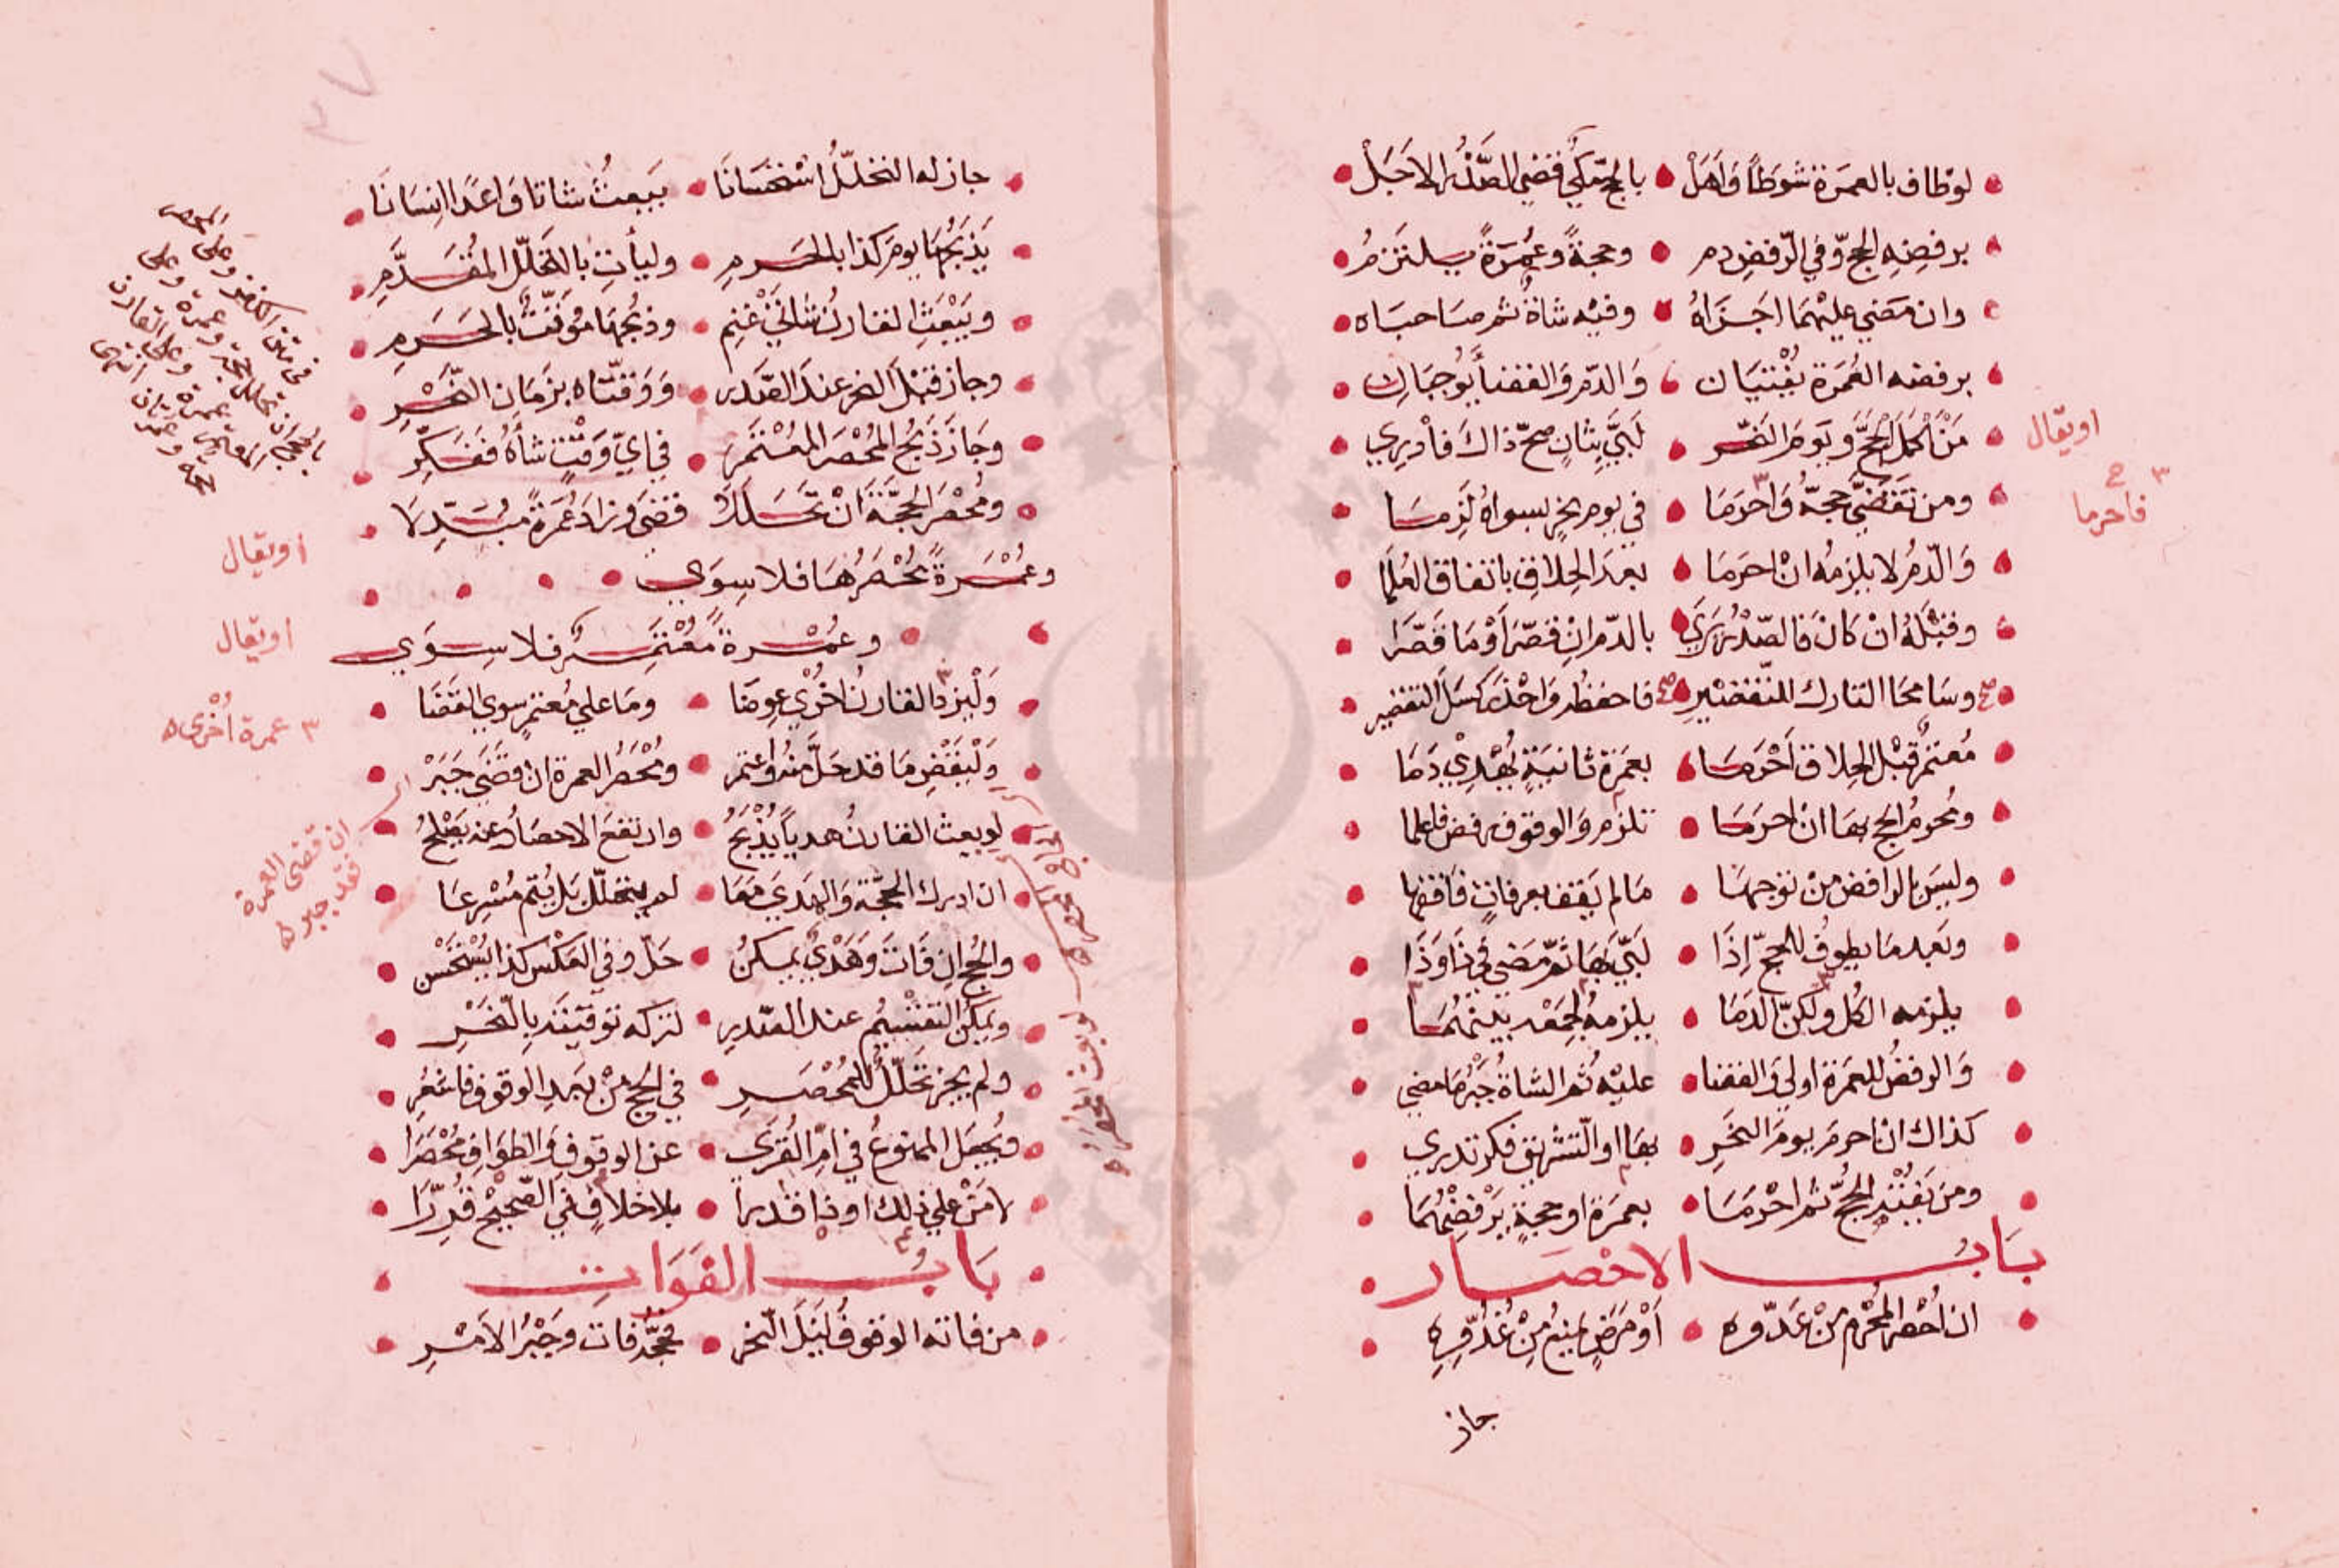 لو طاف بالعمرة شوطاً وَأهَلّ • بالحج مكيّ قضى الصَّدْرُ الاجَلّ
برفضِهِ الحج وفي الرّفضِ دم • وحجةً وعُمرَةً يلتزمُ
وان مضى عليهما اجزاهُ • وفيه شاةٌ ثم صاحباه
برفضه العُمرَة يُفْتيان • وَالدّم والقضا يُوجبان
مَنْ أكملَ الحَجَّ ويَومَ النحر • لَبَّى بِثانٍ صحّ ذاكَ فأدري
ومن تقضَّى حجهُ وَاحرَمَا • في يوم نحرٍ بسواهُ لَزِمَا
وَالدّمُ لا يلزمُه انْ احرَمَا • بعدَ الحِلاقِ باتفاق العُلَمَا
وقبْلَهُ انْ كانَ فالصّدْرُ يَرَى • بالدّم انْ قصّرَ أوْ مَا قَصّرَا
وسَامحَا التارك للتّقصيْرِ • فاحفظْ وَاحْذَر كَسَلَ التقصير
مُعتمرٌ قبْل الحِلاق أحْرَمَا • بعمَرةٍ ثانيَةٍ يُهْدِي دَمَا
ومُحرمُ الحج بهَا انْ احرمَا • تلزم وَالوقوف رفض فاعلما
وليسَ بالرافض منْ توجهَا • مَا لم يَقف بعرفاتٍ فافقها
وبَعد مَا يطوفُ للحجّ إذَا • لَبَّى بهَا ثمّ مَضى في ذَا وَذَا
يلزمه الكُل ولكنّ الدَمَا • يلزمهُ لِجَمْعه بينهُمَا
وَالرفضُ للعمَرة اولى وَالقضا • عليْه ثم الشاةُ جَبْرُ مَا مضى
كذاك ان احرمَ يومَ النحَرِ • بهَا او التّشريق فكر تدري
ومن يَفُتْه الحجُّ ثم احْرَمَا • بعمَرة او حجةٍ يَرْفضْهُمَا
بَابُ الاحْصَار
ان أُحْصرَ المُحْرم مِنْ عَدّوه • أوْ مَرَضٍ يمنعُ مِنْ غُدُوّه
جاز
او يقال
فاحرما
٣٧
جاز له التحلّلُ اسْتحسَانَا • بِبَعثُ شاتا وَاعدَ انسَانَا
يَذبَحُهَا يومَ كذا بالحَرمِ • وليأتِ بالتحَلّل المُقدَّمِ
ويَبْعَثِ القارنُ شاتَيْ غنمِ • وذبحُهَا مُوَقّتٌ بالحَرمِ
وجاز قبْلَ النحر عندَ الصَّدر • وَوَقتّاه بزمَان النّحْرِ
وجَازَ ذَبحُ المُحْصَر المُعْتَمرِ • في ايّ وَقْتٍ شَأهُ فَفَكِّرِ
ومُحْصَرُ الحجَّة انْ تحَللاَ • قضىَ وزادَ عُمَرةً مبتدِلا
وعُمْرةً مُحْصَرُهَا فلا سِوَى
وعُمْرةً مُعْتَمِرٌ فلا سِوَى
وَلْيزدِ القارنُ اخْرى عِوضَا • ومَا على مُعتمرٍ سوى القضَا
وَلْيَقْضِ مَا قد حَلّ منهُ وَاعتمر • ومُحْصَرُ العمرة ان قضَى جَبَرْ
لو بعث القارنُ هدياً يُذْبَحُ • وارتفعَ الاحصارُ عنه يَصْلحُ
ان ادرك الحَجَّةَ وَالهَديَ مَعَا • لم يتحلّل بَل يُتم مُسْرِعَا
والحُج ان فَاتَ وَهَدْيٌ يمكنُ • حَلّ وفي العَكْس كذا يُسْتحْسَن
ويمكنُ التقْسيْمُ عند الصّدرِ • لتركه توقيتَه بالنّحْرِ
ولم يجز تحَلّلٌ للمُحْصَرِ • في الحج مِنْ بَعدِ الوقوف فاشعُرِ
ويُجعَل الممنوعُ في امّ القُرَى • عن الوقوف وَالطوَاف مُحْصَرَا
لا مَنْ على ذلك او ذا قدَرا • بلا خلاف في الصّحيْح قُرِّرَا
بَابُ الفَوَات
من فاته الوقوفُ قَبْلَ النّحر • فحجُّه فاتَ وجَبْرُ الامْرِ
او يقال
او يقال
٣ عمرة أُخْرى ه
ان قضى العمرة
فقد جبر ه